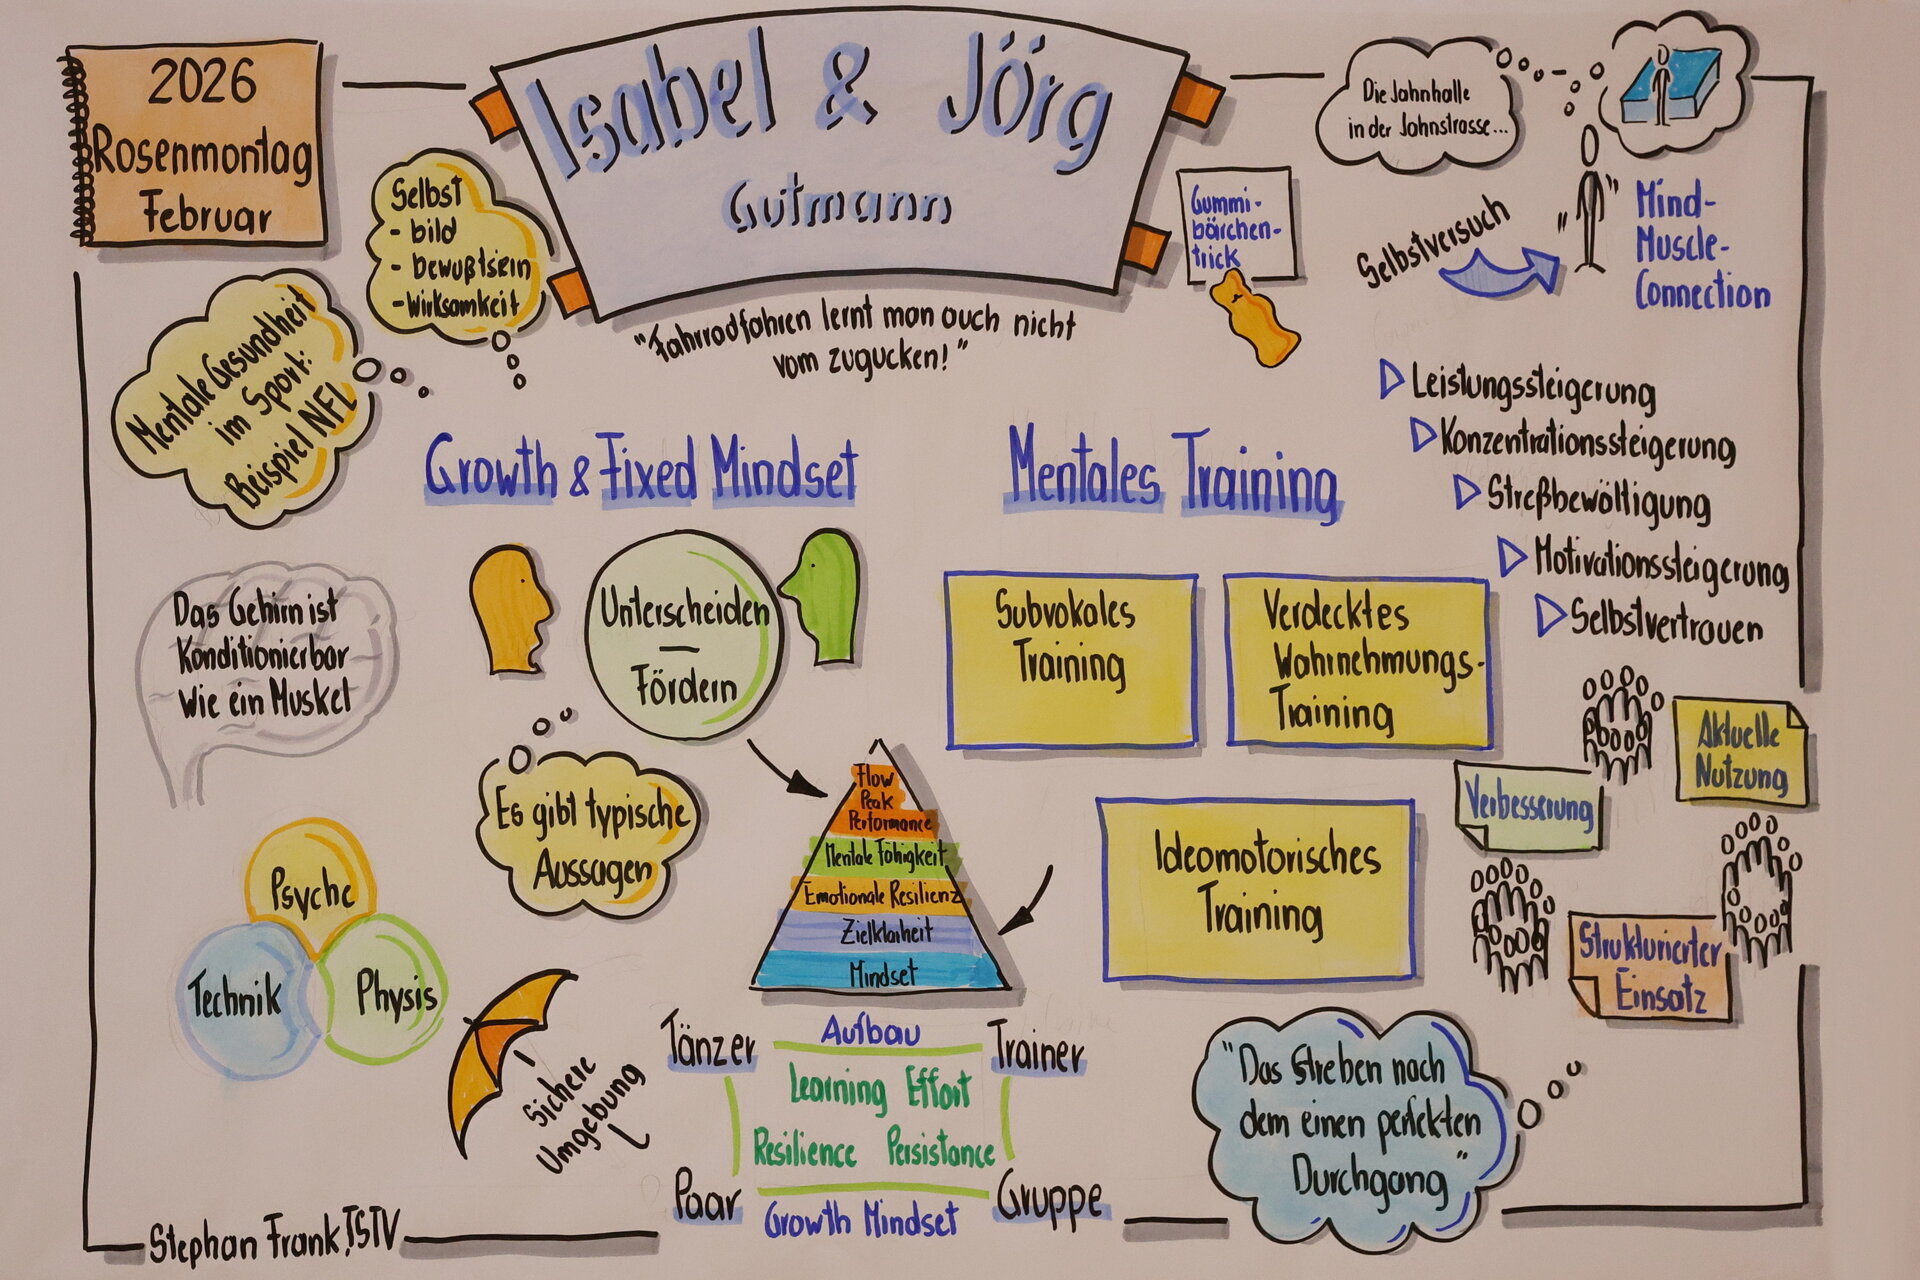 2026
Rosenmontag
Februar
Isabel & Jörg
Gutmann
"Fahrradfahren lernt man auch nicht
vom zugucken!"
Selbst
- bild
- bewußtsein
- Wirksamkeit
Mentale Gesundheit
im Sport:
Beispiel NFL
Gummi-
bärchen-
trick
Die Jahnhalle
in der Jahnstrasse...
Selbstversuch
Mind-
Muscle-
Connection
Leistungssteigerung
Konzentrationssteigerung
Streßbewältigung
Motivationssteigerung
Selbstvertrauen
Growth & Fixed Mindset
Mentales Training
Das Gehirn ist
Konditionierbar
Wie ein Muskel
Unterscheiden
—
Fördern
Es gibt typische
Aussagen
Subvokales
Training
Verdecktes
Wahrnehmungs-
Training
Ideomotorisches
Training
Aktuelle
Nutzung
Verbesserung
Strukturierter
Einsatz
Flow
Peak
Performance
Mentale Fähigkeit
Emotionale Resilienz
Zielklarheit
Mindset
Psyche
Technik
Physis
Sichere
Umgebung
Tänzer
Aufbau
Trainer
Learning Effort
Resilience Persistance
Paar
Growth Mindset
Gruppe
"Das Streben nach
dem einen perfekten
Durchgang"
Stephan Frank, TSTV